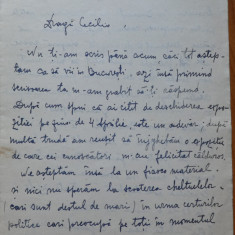 Dragă Cecilia
Nu ți-am scris până acum căci tot aștep-
tam ca să vii în București, azi însă primind
scrisoarea ta m-am grăbit să-ți răspund.
După cum spui că ai citit de deschiderea expo-
ziției pe ziua de 4 Aprilie, este un adevăr; după
multă trudă am reușit să înjghebăm o expoziție
de care cei cunoscători m-au felicitat călduros.
Ne așteptăm însă la un fiasco material
și nici nu sperăm la scoaterea cheltuelilor
(cari sunt destul de mari) în urma certurilor
politice cari preocupă pe toți în momentul